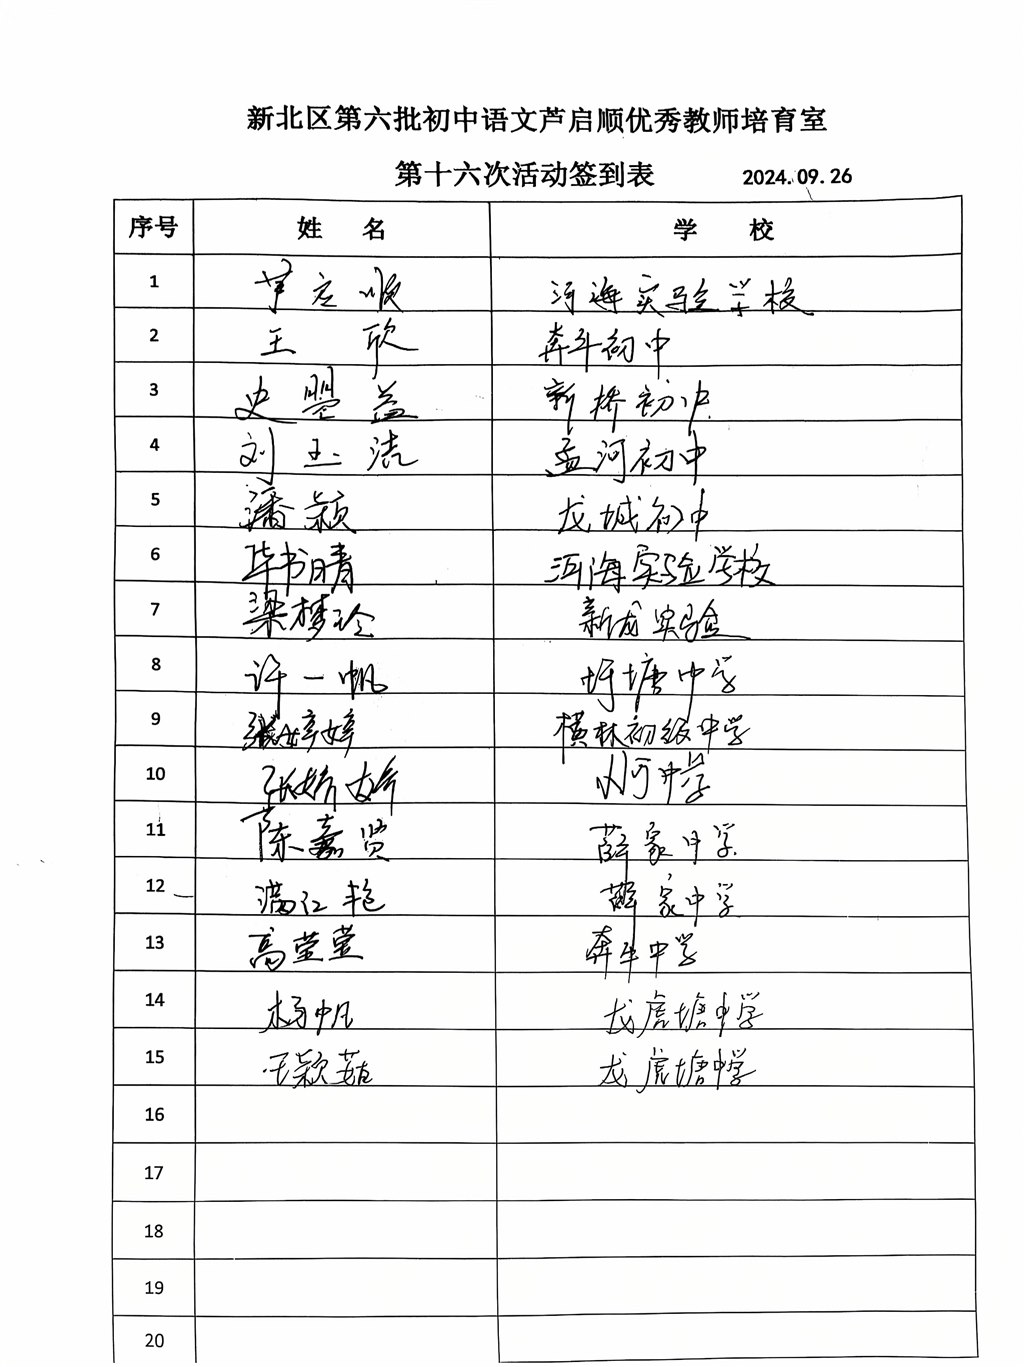 新北区第六批初中语文芦启顺优秀教师培育室
第十六次活动签到表 2024.09.26
序号 姓 名 学 校
1 芦启顺 河海实验学校
2 王 欣 奔牛初中
3 史曌益 新桥初中
4 刘玉洁 孟河初中
5 潘颖 龙城初中
6 毕书晴 河海实验学校
7 梁梦玲 新龙实验
8 许一帆 圩塘中学
9 张婷婷 横林初级中学
10 张娇娇 小河中学
11 陈嘉贤 薛家中学
12 满江艳 薛家中学
13 高莹莹 奔牛中学
14 杨帆 龙虎塘中学
15 王颖茹 龙虎塘中学
16
17
18
19
20